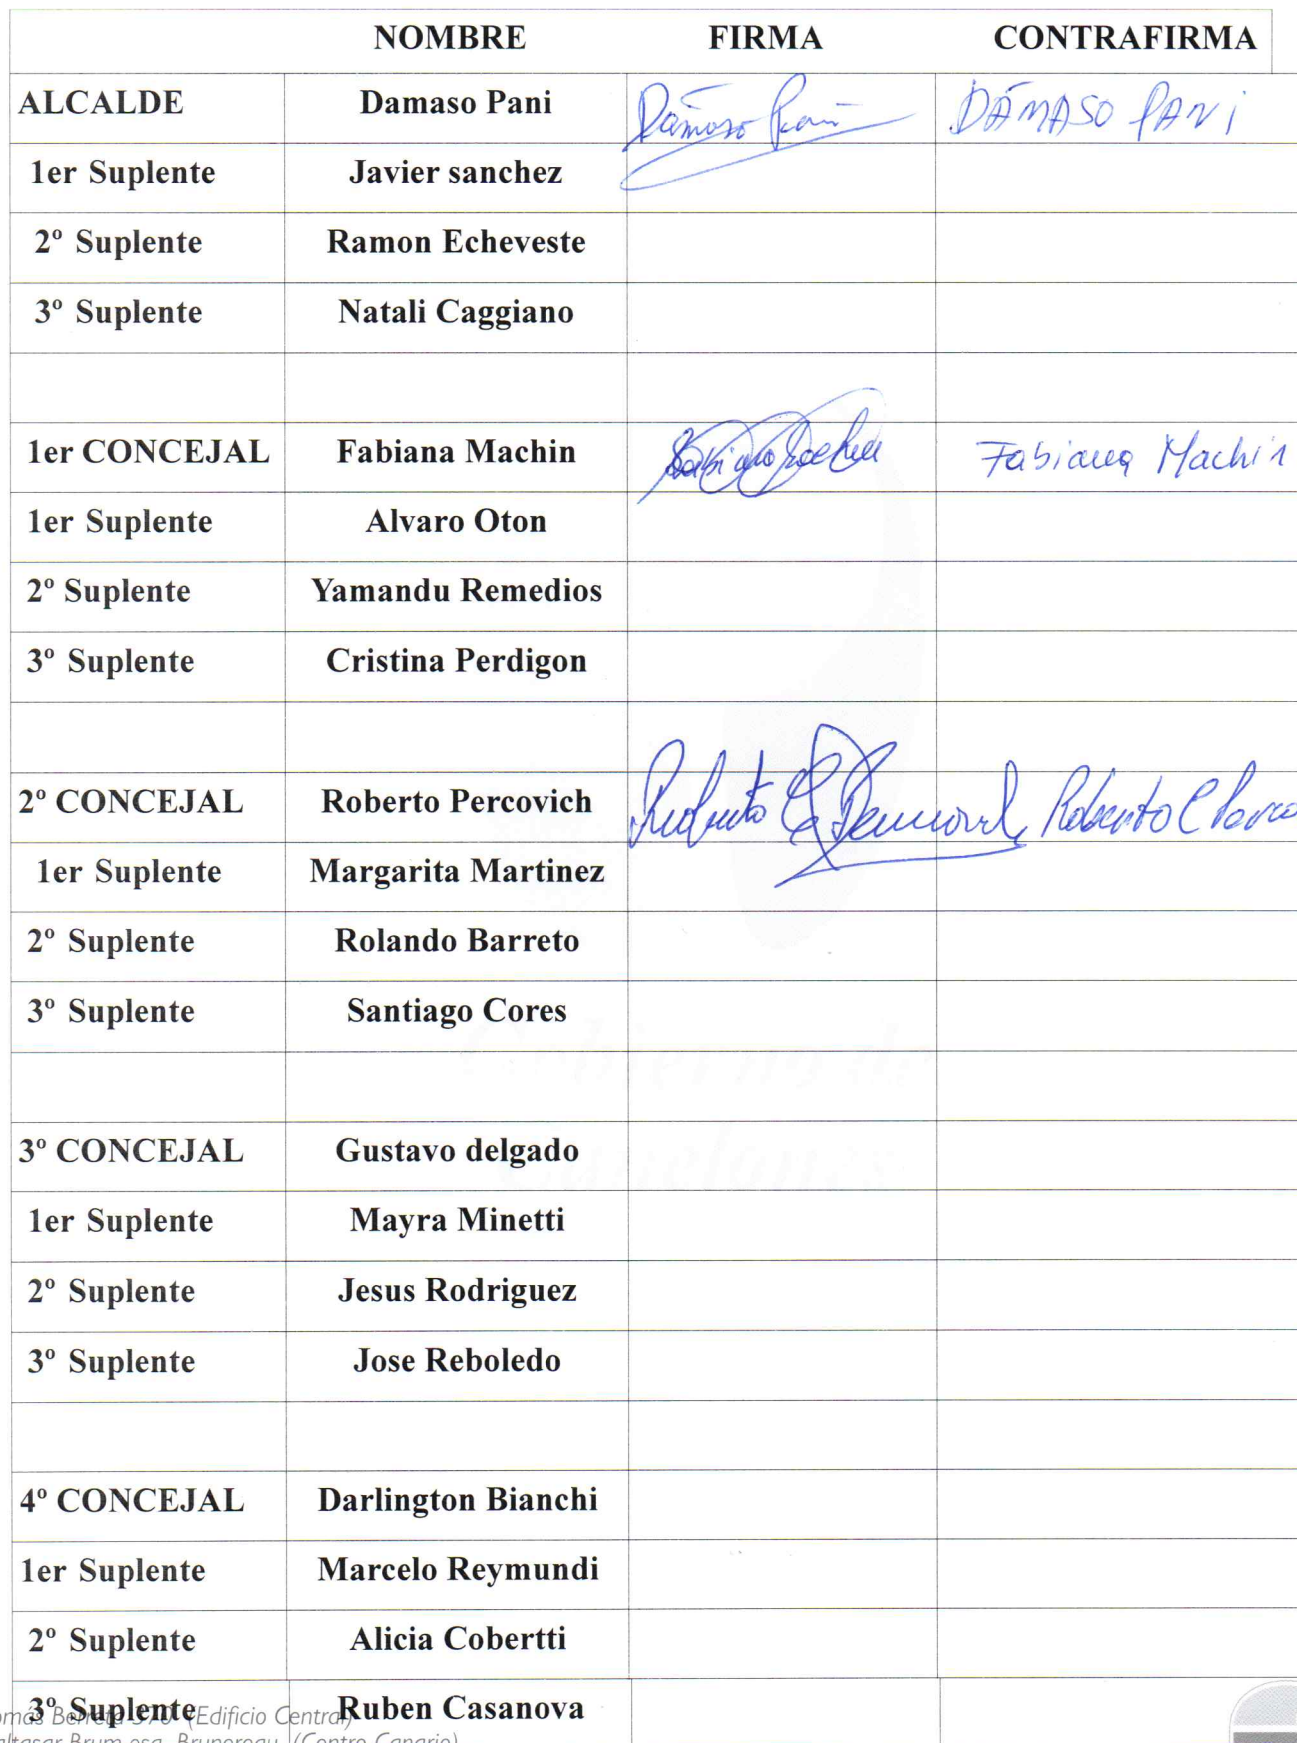 NOMBRE FIRMA CONTRAFIRMA
ALCALDE Damaso Pani Dámaso Pani DÁMASO PANI
1er Suplente Javier sanchez
2º Suplente Ramon Echeveste
3º Suplente Natali Caggiano
1er CONCEJAL Fabiana Machin Fabiana Machin
1er Suplente Alvaro Oton
2º Suplente Yamandu Remedios
3º Suplente Cristina Perdigon
2º CONCEJAL Roberto Percovich Roberto C Roberto C
1er Suplente Margarita Martinez
2º Suplente Rolando Barreto
3º Suplente Santiago Cores
Gobierno de
Canelones
3º CONCEJAL Gustavo delgado
1er Suplente Mayra Minetti
2º Suplente Jesus Rodriguez
3º Suplente Jose Reboledo
4º CONCEJAL Darlington Bianchi
1er Suplente Marcelo Reymundi
2º Suplente Alicia Cobertti
3º Suplente Ruben Casanova
Berreta 370 (Edificio Central)
Brum esq. (Centro Canario)